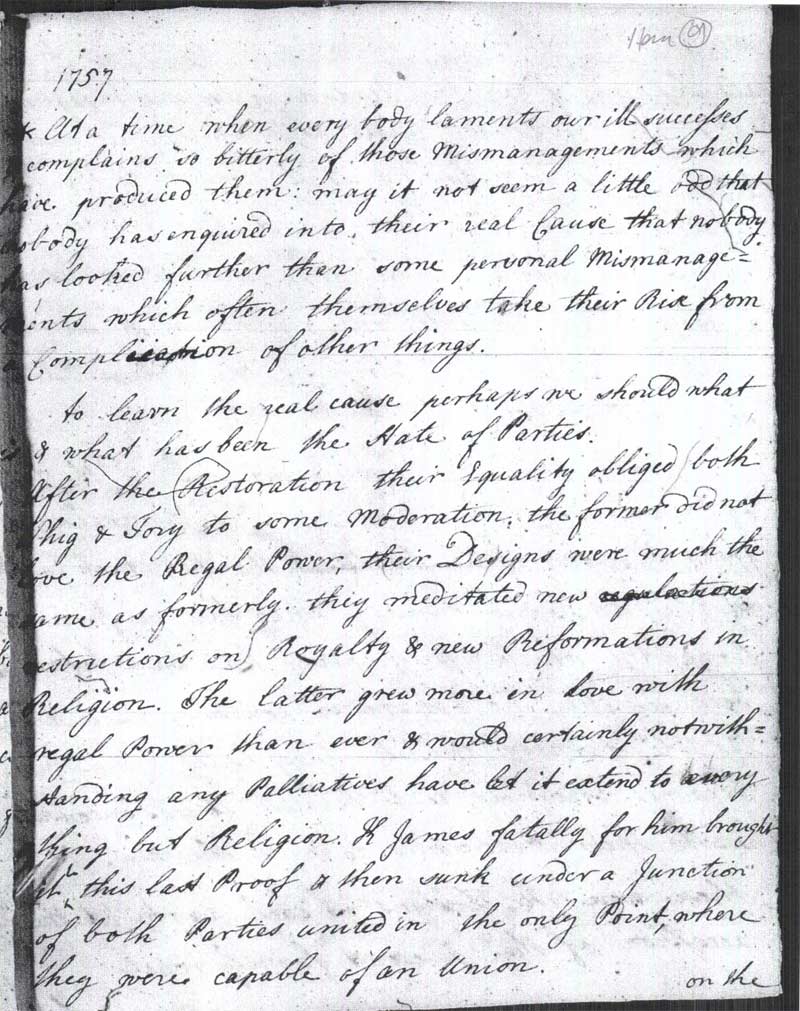 1757
At a time when every body laments our ill successes
complains so bitterly of those Mismanagements which
have produced them: may it not seem a little odd that
nobody has enquired into their real Cause that nobody
has looked further than some personal Mismanage=
ments which often themselves take their Rise from
a Complication of other things.
to learn the real cause perhaps we should what
is & what has been the State of Parties.
After the Restoration their Equality obliged both
Whig & Tory to some Moderation. the former did not
love the Regal Power, their Designs were much the
same as formerly. they meditated new regulations
restrictions on Royalty & new Reformations in
Religion. The latter grew more in love with
regal Power than ever & would certainly notwith=
standing any Palliatives have let it extend to every
thing but Religion. K James fatally for him brought
it to this last Proof & then sunk under a Junction
of both Parties united in the only Point, where
they were capable of an Union.
on the